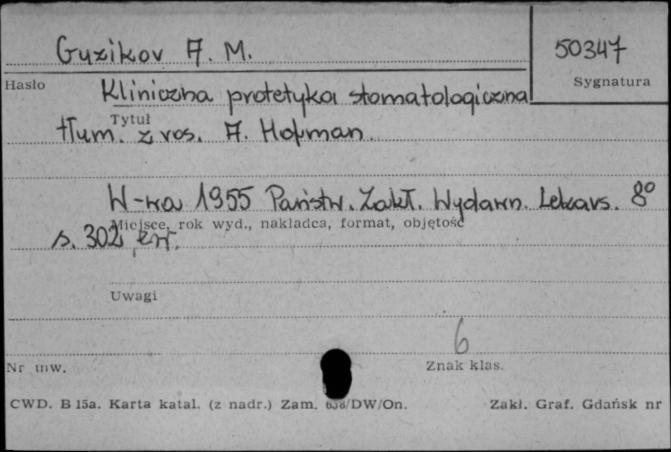 Guzikov A. M.
50347
Hasło
Sygnatura
Kliniczna protetyka stomatologiczna
Tytuł
tłum. z ros. A. Hofman.
W-wa 1955 Państw. Zakł. Wydawn. Lekars. 8°
Miejsce, rok wyd., nakładca, format, objętość
s. 302,
Uwagi
6
Nr inw.
Znak klas.
CWD. B 15a. Karta katal. (z nadr.) Zam. 638/DW/On.
Zakł. Graf. Gdańsk nr